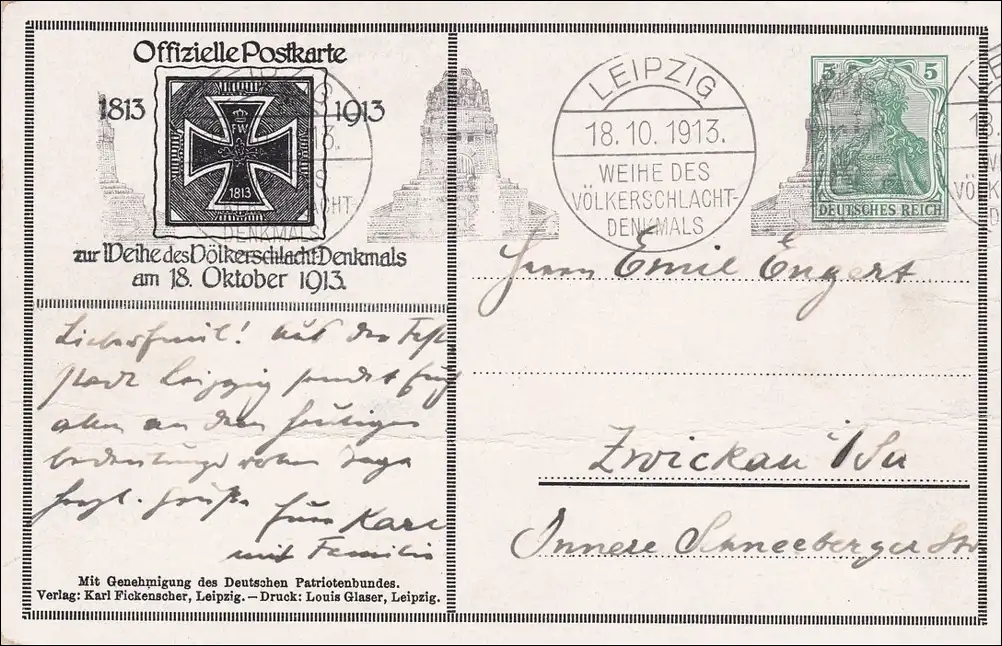 Offizielle Postkarte
1813 1913
FW
1813
zur Weihe des Völkerschlacht-Denkmals
am 18. Oktober 1913.
LEIPZIG
18.10.1913.
WEIHE DES
VÖLKERSCHLACHT-
DENKMALS
5 5
DEUTSCHES REICH
Herrn Emil Engert
Zwickau i/Sa
Innere Schneeberger Str
Lieber Emil! Aus der Fest
stadt Leipzig sendet Euch
allen an dem heutigen
bedeutungsvollen Tage
herzl. Grüße
Euer Karl
mit Familie
Mit Genehmigung des Deutschen Patriotenbundes.
Verlag: Karl Fickenscher, Leipzig. — Druck: Louis Glaser, Leipzig.